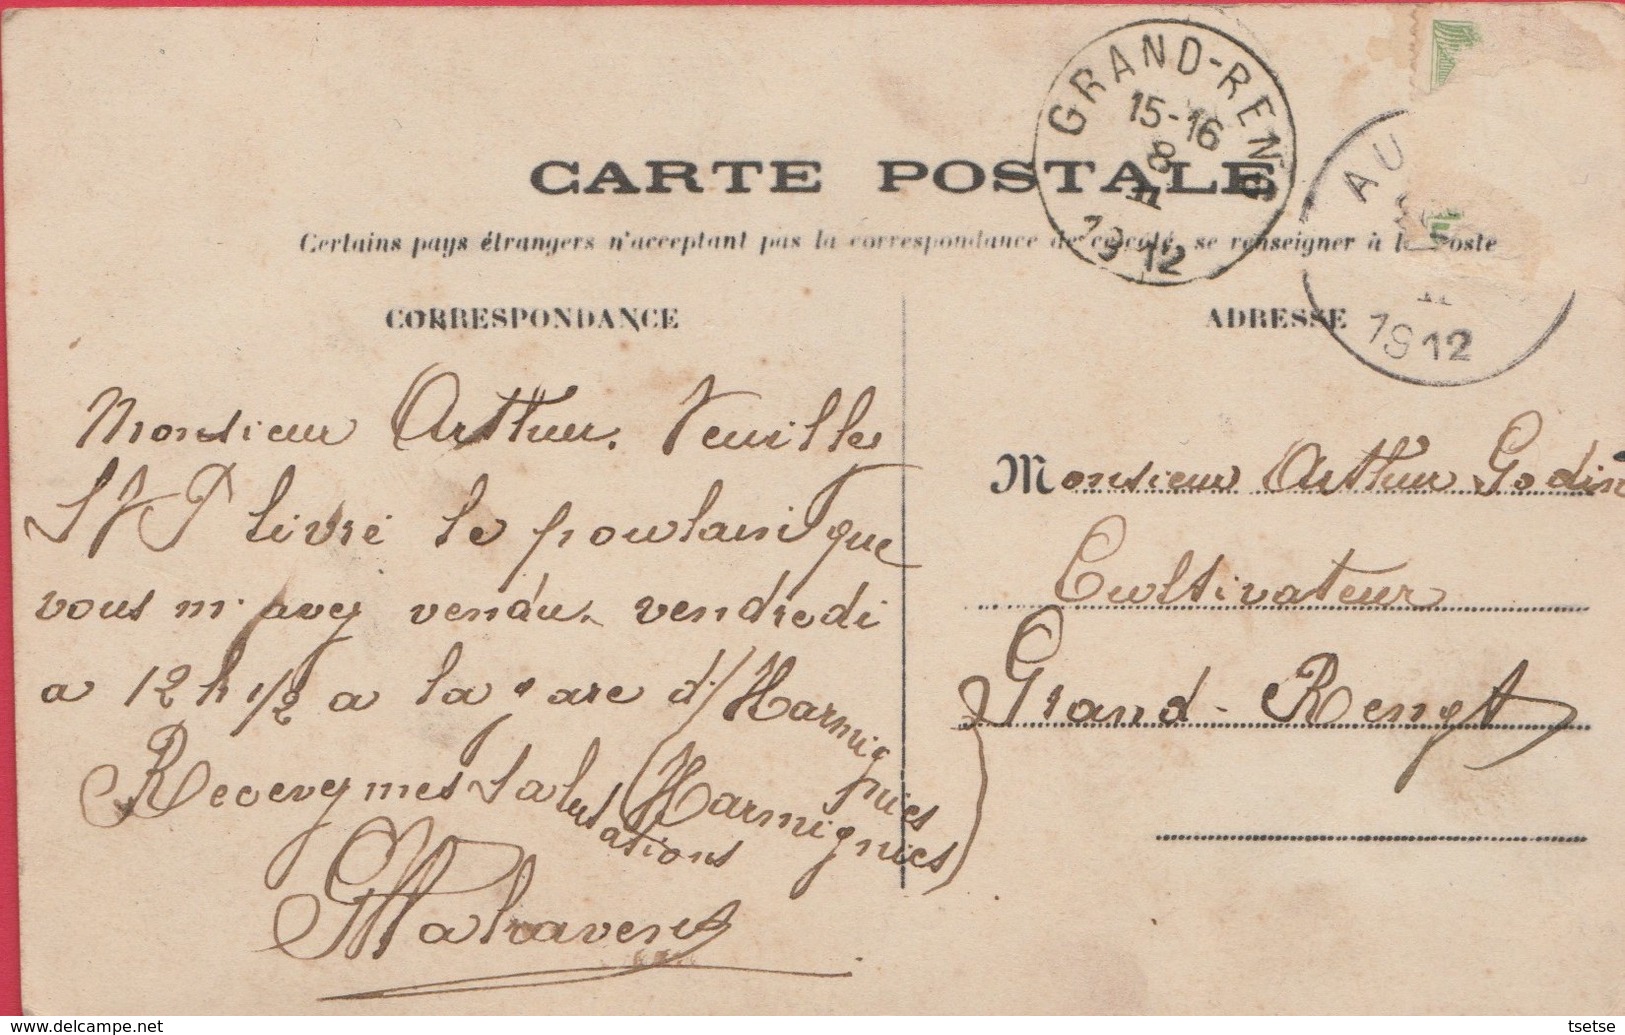 GRAND-RENG
15-16
8
11
1912
AU
11
1912
CARTE POSTALE
Certains pays étrangers n'acceptant pas la correspondance de ce côté, se renseigner à la Poste
CORRESPONDANCE
Monsieur Arthur. Veuillez
S V P livré le poulain que
vous m'avez vendu. vendredi
a 12 h 1/2 a la gare d'/Harmignies
Recevez mes Salutations (Harmignies)
ADRESSE
Monsieur Arthur Godin
Cultivateur
Grand-Rengt
www.delcampe.net
tsetse